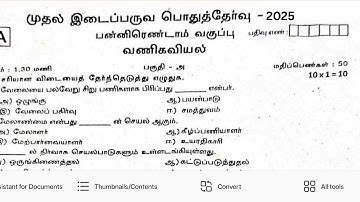 முதல் இடைப்பருவ பொதுத்தேர்வு - 2025
A
பன்னிரெண்டாம் வகுப்பு
பதிவு எண் :
வணிகவியல்
ம் : 1.30 மணி
பகுதி - அ
மதிப்பெண்கள் : 50
சரியான விடையைத் தேர்ந்தெடுத்து எழுதுக.
10 x 1 = 10
வேலையை பல்வேறு சிறு பணிகளாக பிரிப்பது ______ என்பர்.
அ) ஒழுங்கு
ஆ) பயன்பாடு
இ) வேலைப் பகிர்வு
ஈ) சமத்துவம்
மேலாண்மை என்பது ______ ன் செயல் ஆகும்.
அ) மேலாளர்
ஆ) கீழ்ப்பணியாளர்
இ) மேற்பார்வையாளர்
ஈ) உயரதிகாரி
______ ல் நிர்வாக செயல்பாடுகளும் உள்ளடங்கியுள்ளது.
அ) ஒருங்கிணைத்தல்
ஆ) கட்டுப்படுத்துதல்
istant for Documents
Thumbnails/Contents
Convert
All tools